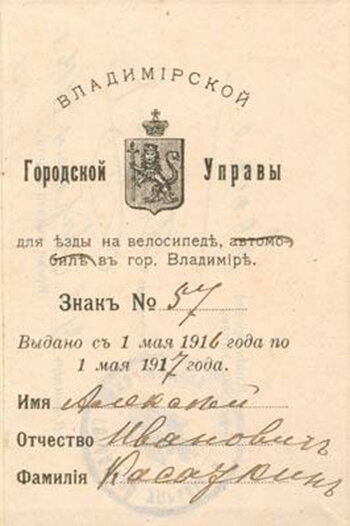 ВЛАДИМІРСКОЙ
Городской Управы
для ѣзды на велосипедѣ, автомо-
билѣ въ гор. Владимірѣ.
Знакъ № 57
Выдано съ 1 мая 1916 года по
1 мая 1917 года.
Имя Алексѣй
Отчество Ивановичъ
Фамилія Касаткинъ